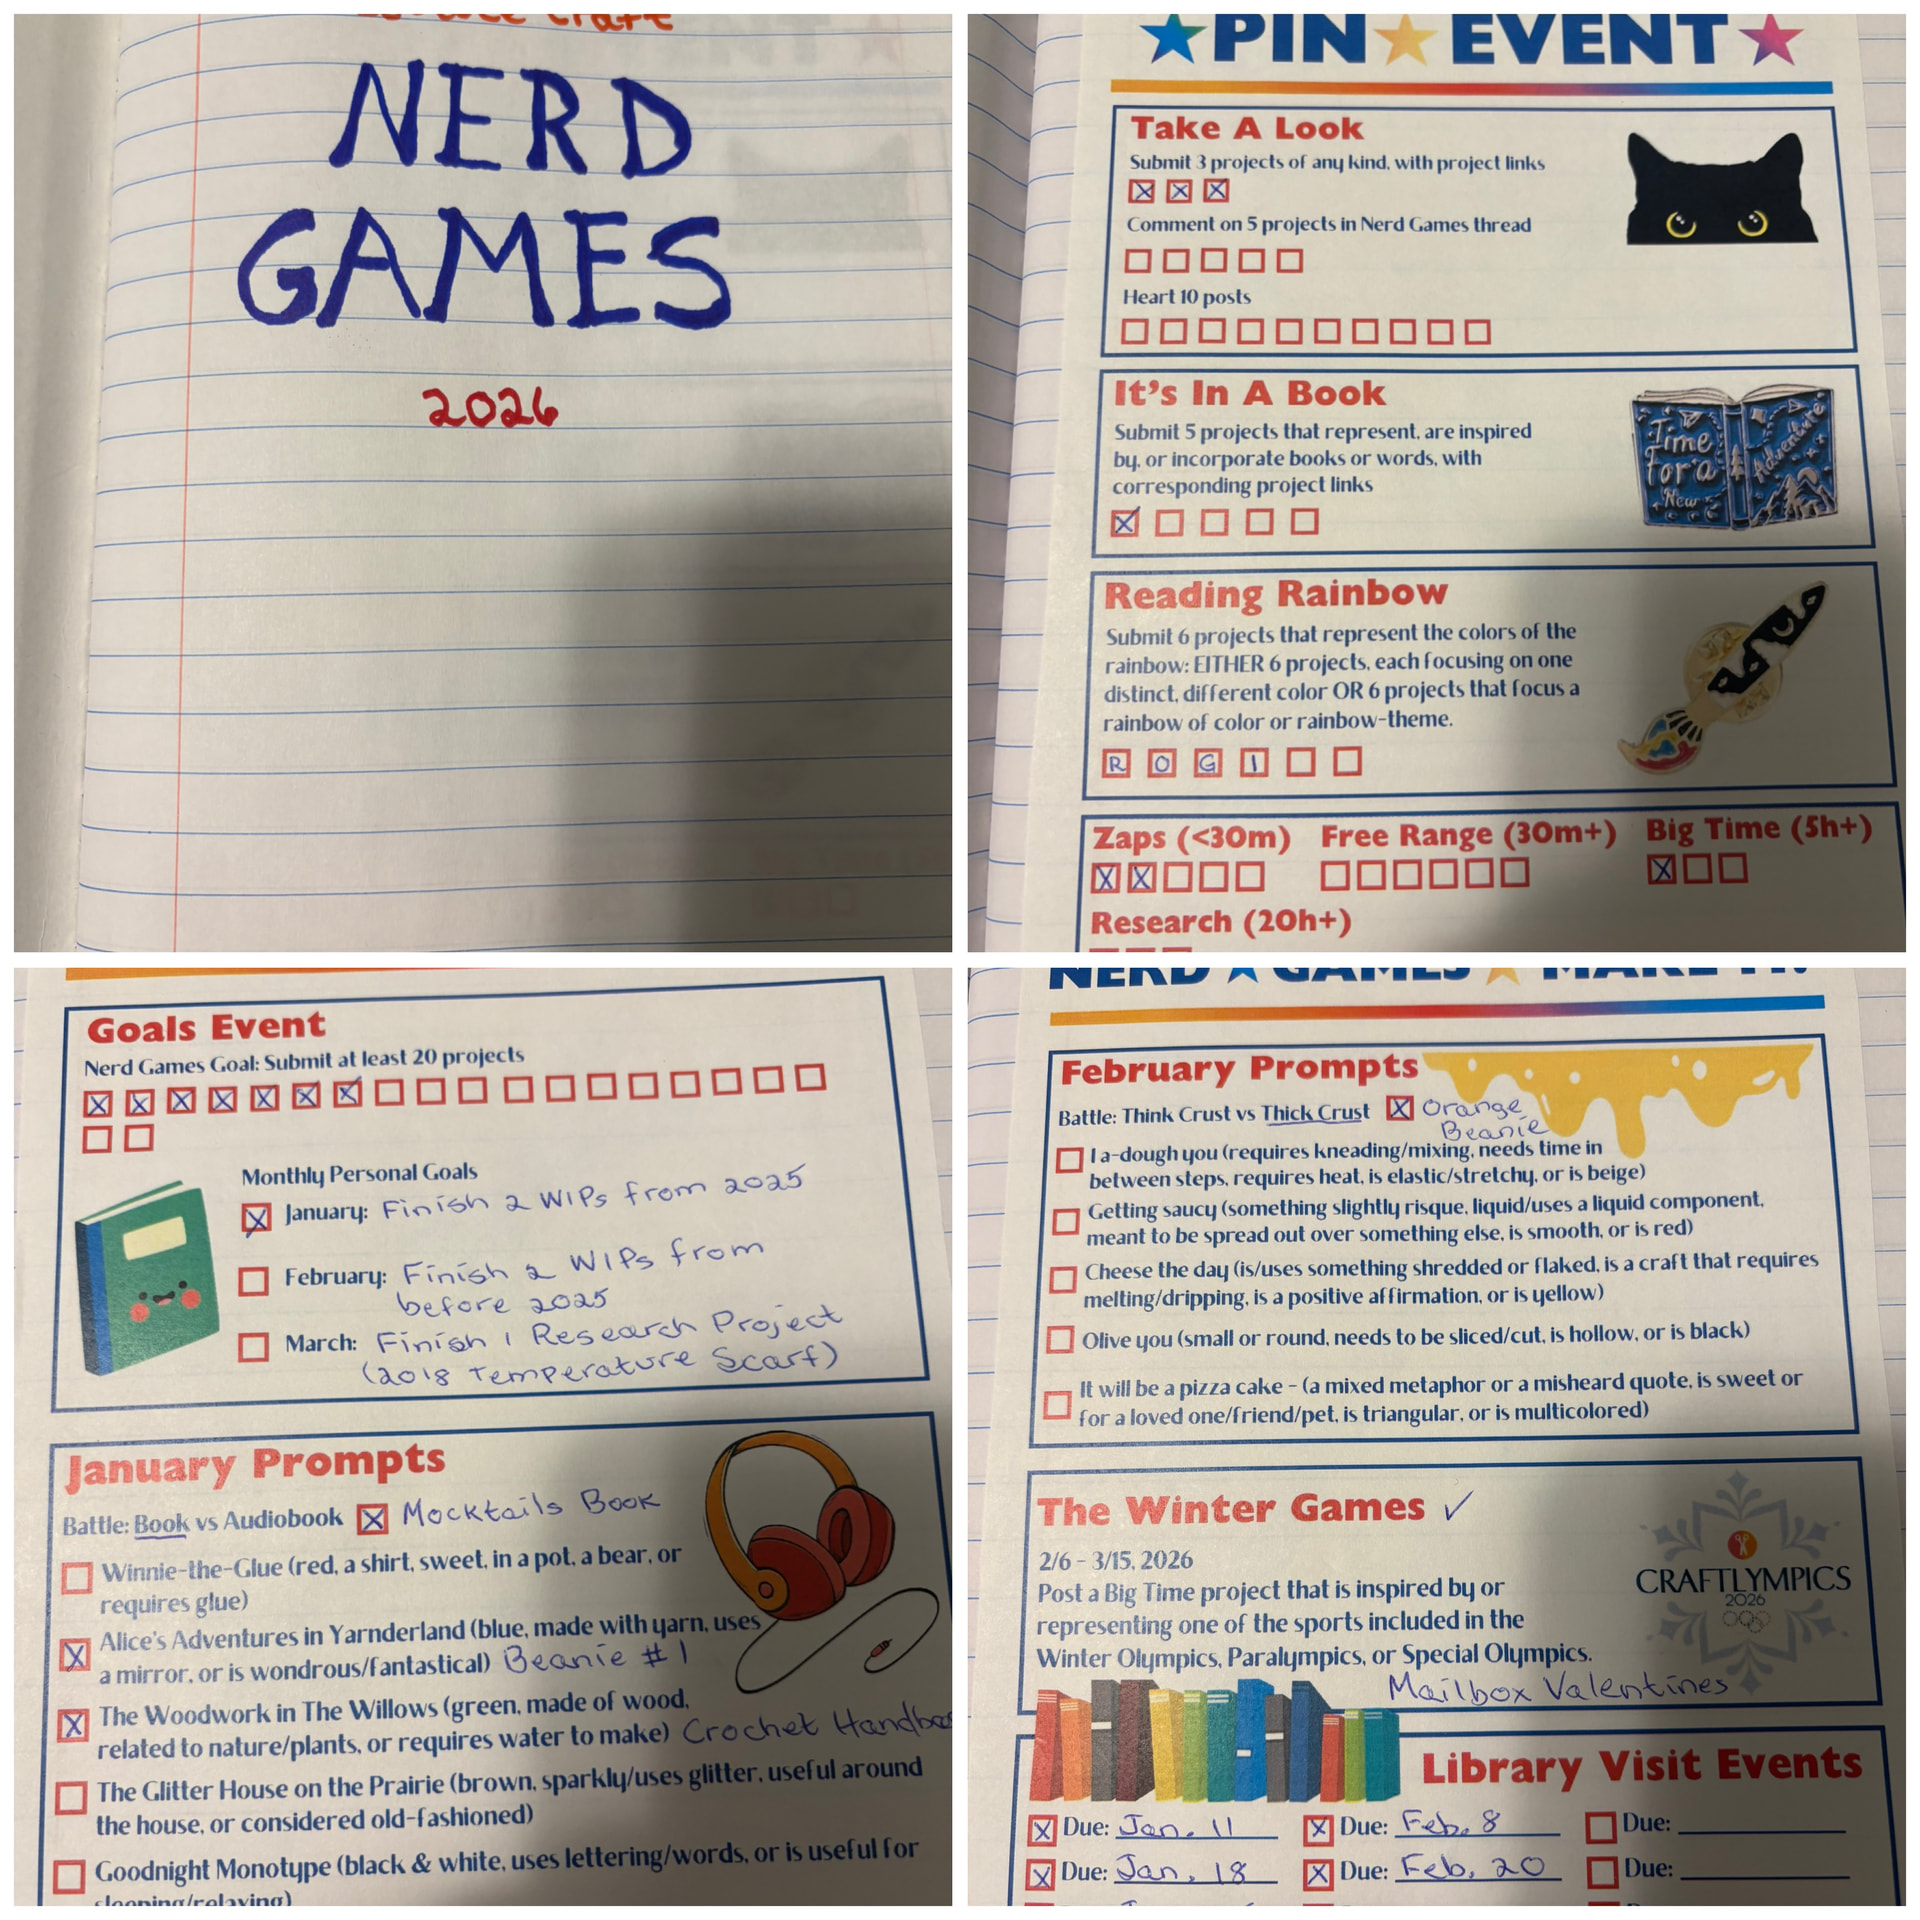 NERD
GAMES
2026
PIN EVENT
Take A Look
Submit 3 projects of any kind, with project links
Comment on 5 projects in Nerd Games thread
Heart 10 posts
It's In A Book
Submit 5 projects that represent, are inspired
by, or incorporate books or words, with
corresponding project links
Time
For a
New
Adventure
Reading Rainbow
Submit 6 projects that represent the colors of the
rainbow: EITHER 6 projects, each focusing on one
distinct, different color OR 6 projects that focus a
rainbow of color or rainbow-theme.
R O G I
Zaps (<30m) Free Range (30m+) Big Time (5h+)
Research (20h+)
Goals Event
Nerd Games Goal: Submit at least 20 projects
Monthly Personal Goals
January: Finish 2 WIPs from 2025
February: Finish 2 WIPs from
before 2025
March: Finish 1 Research Project
(2018 Temperature Scarf)
January Prompts
Battle: Book vs Audiobook Mocktails Book
Winnie-the-Glue (red, a shirt, sweet, in a pot, a bear, or
requires glue)
Alice's Adventures in Yarnderland (blue, made with yarn, uses
a mirror, or is wondrous/fantastical) Beanie #1
The Woodwork in The Willows (green, made of wood,
related to nature/plants, or requires water to make) Crochet
The Glitter House on the Prairie (brown, sparkly/uses glitter, useful around
the house, or considered old-fashioned)
Goodnight Monotype (black & white, uses lettering/words, or is useful for
sleeping/relaxing)
NERD GAMES
February Prompts
Battle: Think Crust vs Thick Crust Orange
Beanie
I a-dough you (requires kneading/mixing, needs time in
between steps, requires heat, is elastic/stretchy, or is beige)
Getting saucy (something slightly risque, liquid/uses a liquid component,
meant to be spread out over something else, is smooth, or is red)
Cheese the day (is/uses something shredded or flaked, is a craft that requires
melting/dripping, is a positive affirmation, or is yellow)
Olive you (small or round, needs to be sliced/cut, is hollow, or is black)
It will be a pizza cake – (a mixed metaphor or a misheard quote, is sweet or
for a loved one/friend/pet, is triangular, or is multicolored)
The Winter Games ✓
2/6 – 3/15, 2026
Post a Big Time project that is inspired by or
representing one of the sports included in the
Winter Olympics, Paralympics, or Special Olympics.
Mailbox Valentines
CRAFTLYMPICS
2026
Library Visit Events
Due: Jan. 11 Due: Feb. 8 Due:
Due: Jan. 18 Due: Feb. 20 Due: